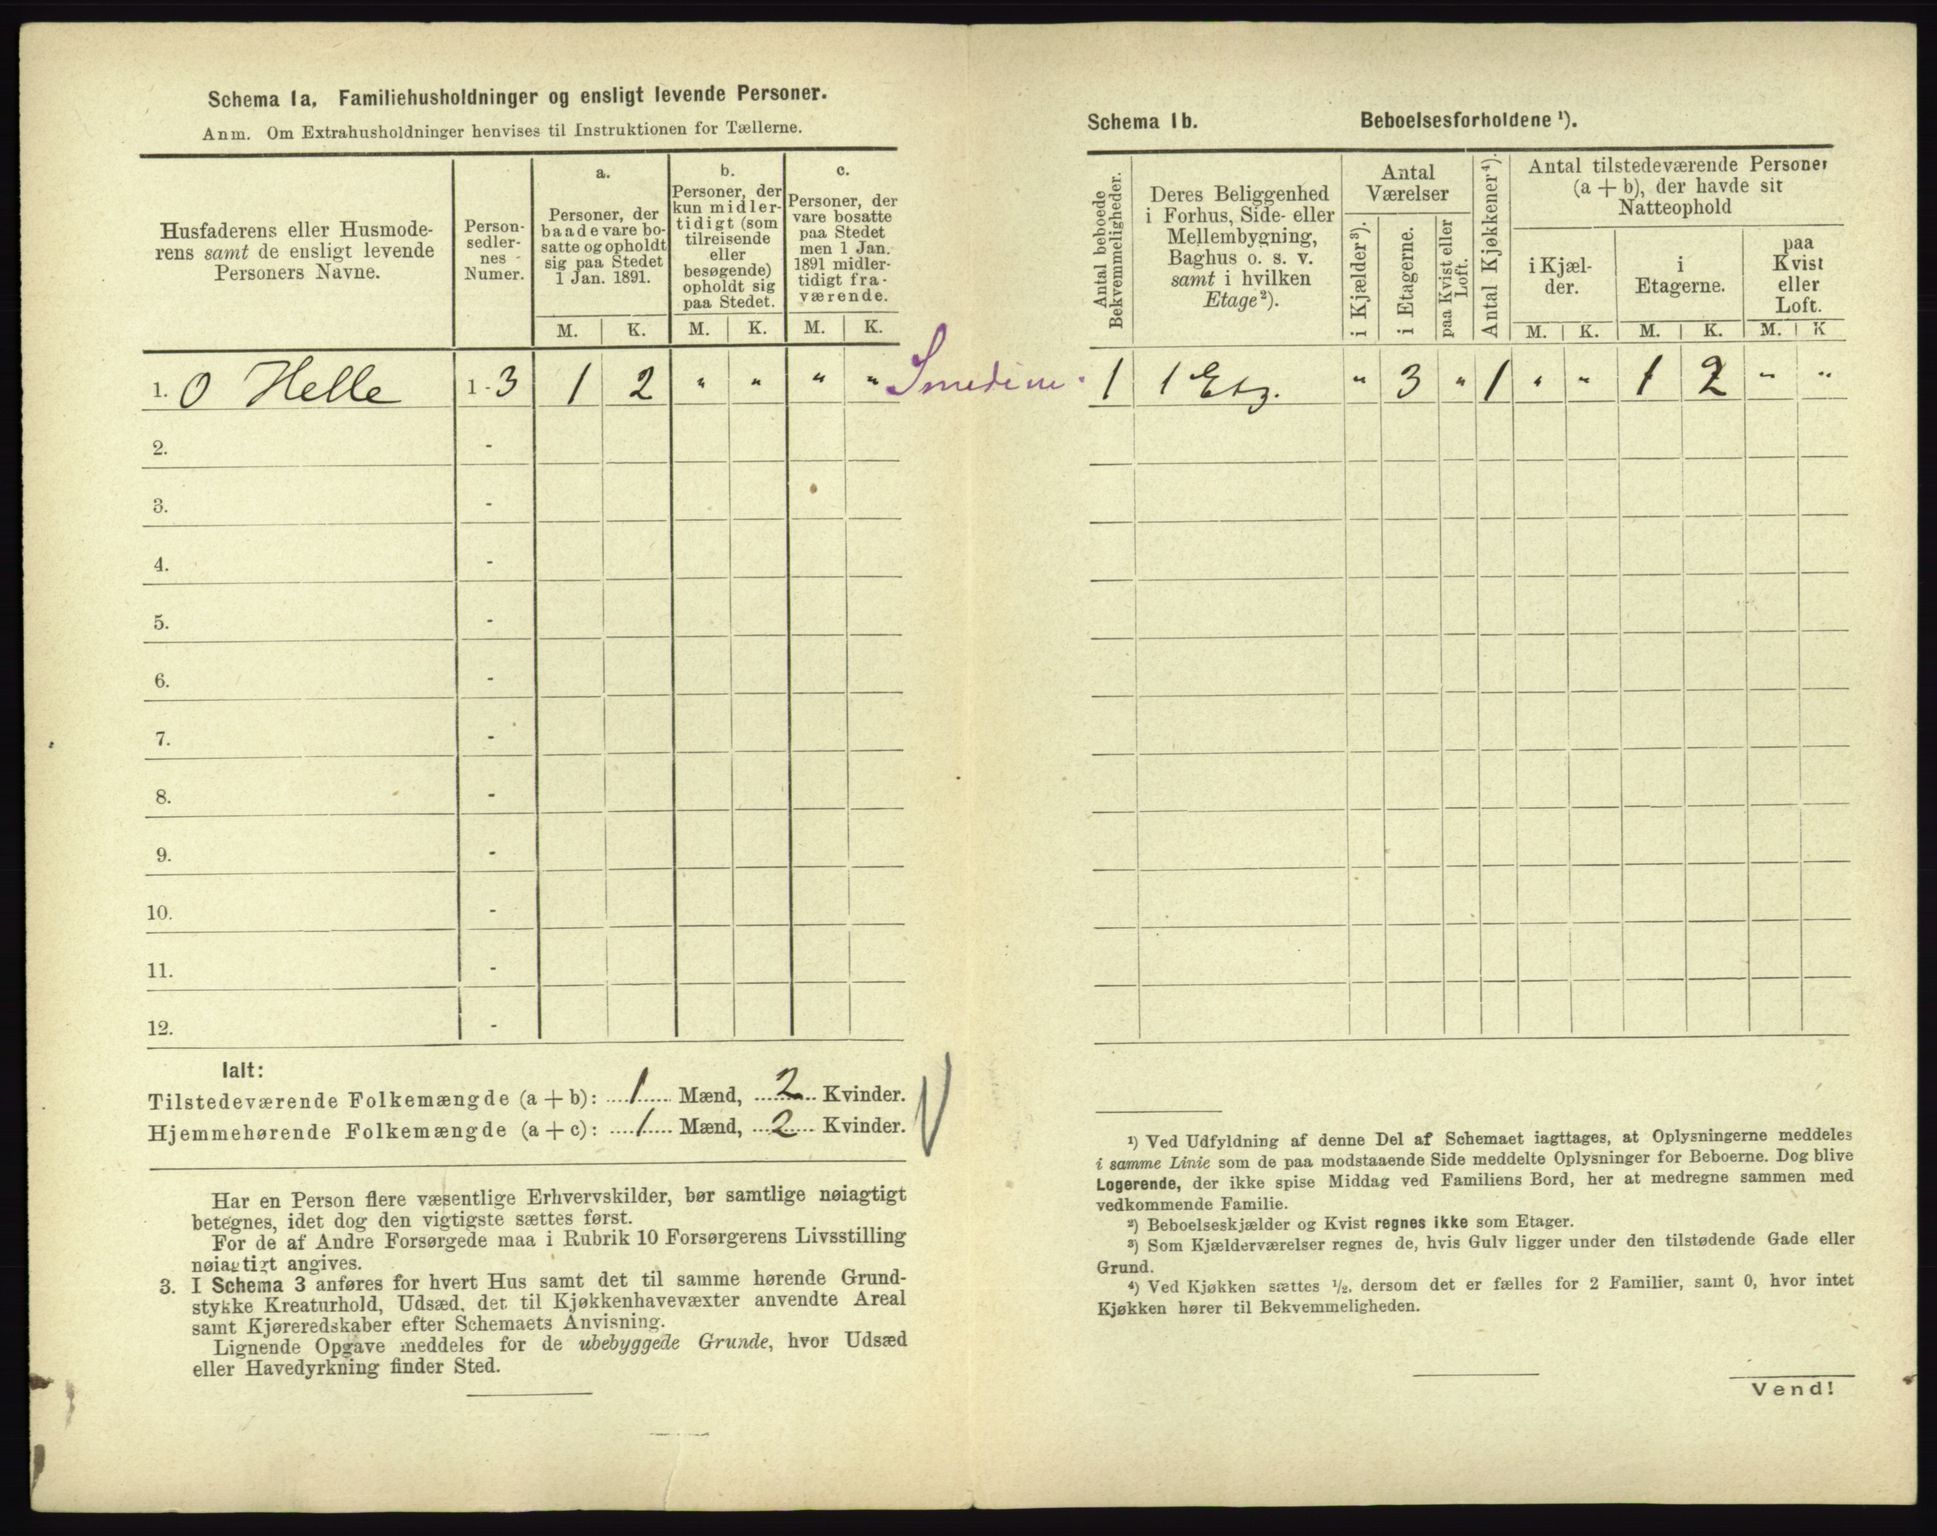 Schema 1a. Familiehusholdninger og ensligt levende Personer.
Anm. Om Extrahusholdninger henvises til Instruktionen for Tællerne.
Husfaderens eller Husmode-
rens samt de ensligt levende
Personers Navne.
Person-
sedler-
nes
Numer.
a.
Personer, der
baade vare bo-
satte og opholdt
sig paa Stedet
1 Jan. 1891.
b.
Personer, der
kun midler-
tidigt (som
tilreisende
eller
besøgende)
opholdt sig
paa Stedet.
c.
Personer, der
vare bosatte
paa Stedet
men 1 Jan.
1891 midler-
tidigt fra-
værende.
M. K. M. K. M. K.
1. O Helle 1 - 3 1 2 " " " "
2. -
3. -
4. -
5. -
6. -
7. -
8. -
9. -
10. -
11. -
12. -
Ialt:
Tilstedeværende Folkemængde (a + b): 1 Mænd, 2 Kvinder.
Hjemmehørende Folkemængde (a + c): 1 Mænd, 2 Kvinder.
Har en Person flere væsentlige Erhvervskilder, bør samtlige nøiagtigt
betegnes, idet dog den vigtigste sættes først.
For de af Andre Forsørgede maa i Rubrik 10 Forsørgerens Livsstilling
nøiagtigt angives.
3. I Schema 3 anføres for hvert Hus samt det til samme hørende Grund-
stykke Kreaturhold, Udsæd, det til Kjøkkenhavevæxter anvendte Areal
samt Kjøreredskaber efter Schemaets Anvisning.
Lignende Opgave meddeles for de ubebyggede Grunde, hvor Udsæd
eller Havedyrkning finder Sted.
Schema 1b. Beboelsesforholdene ¹).
Antal beboede
Bekvemmeligheder.
Deres Beliggenhed
i Forhus, Side- eller
Mellembygning,
Baghus o. s. v.
samt i hvilken
Etage ²).
Antal
Værelser
i Kjælder ³).
i Etagerne.
paa Kvist eller
Loft.
Antal Kjøkkener ⁴).
Antal tilstedeværende Personer
(a + b), der havde sit
Natteophold
i Kjæl-
der.
i
Etagerne.
paa
Kvist
eller
Loft.
M. K. M. K. M. K
1 1 Etg. " 3 " 1 " " 1 2 " "
¹) Ved Udfyldning af denne Del af Schemaet iagttages, at Oplysningerne meddeles
i samme Linie som de paa modstaaende Side meddelte Oplysninger for Beboerne. Dog blive
Logerende, der ikke spise Middag ved Familiens Bord, her at medregne sammen med
vedkommende Familie.
²) Beboelseskjælder og Kvist regnes ikke som Etager.
³) Som Kjælderværelser regnes de, hvis Gulv ligger under den tilstødende Gade eller
Grund.
⁴) Ved Kjøkken sættes ½, dersom det er fælles for 2 Familier, samt 0, hvor intet
Kjøkken hører til Bekvemmeligheden.
Vend!